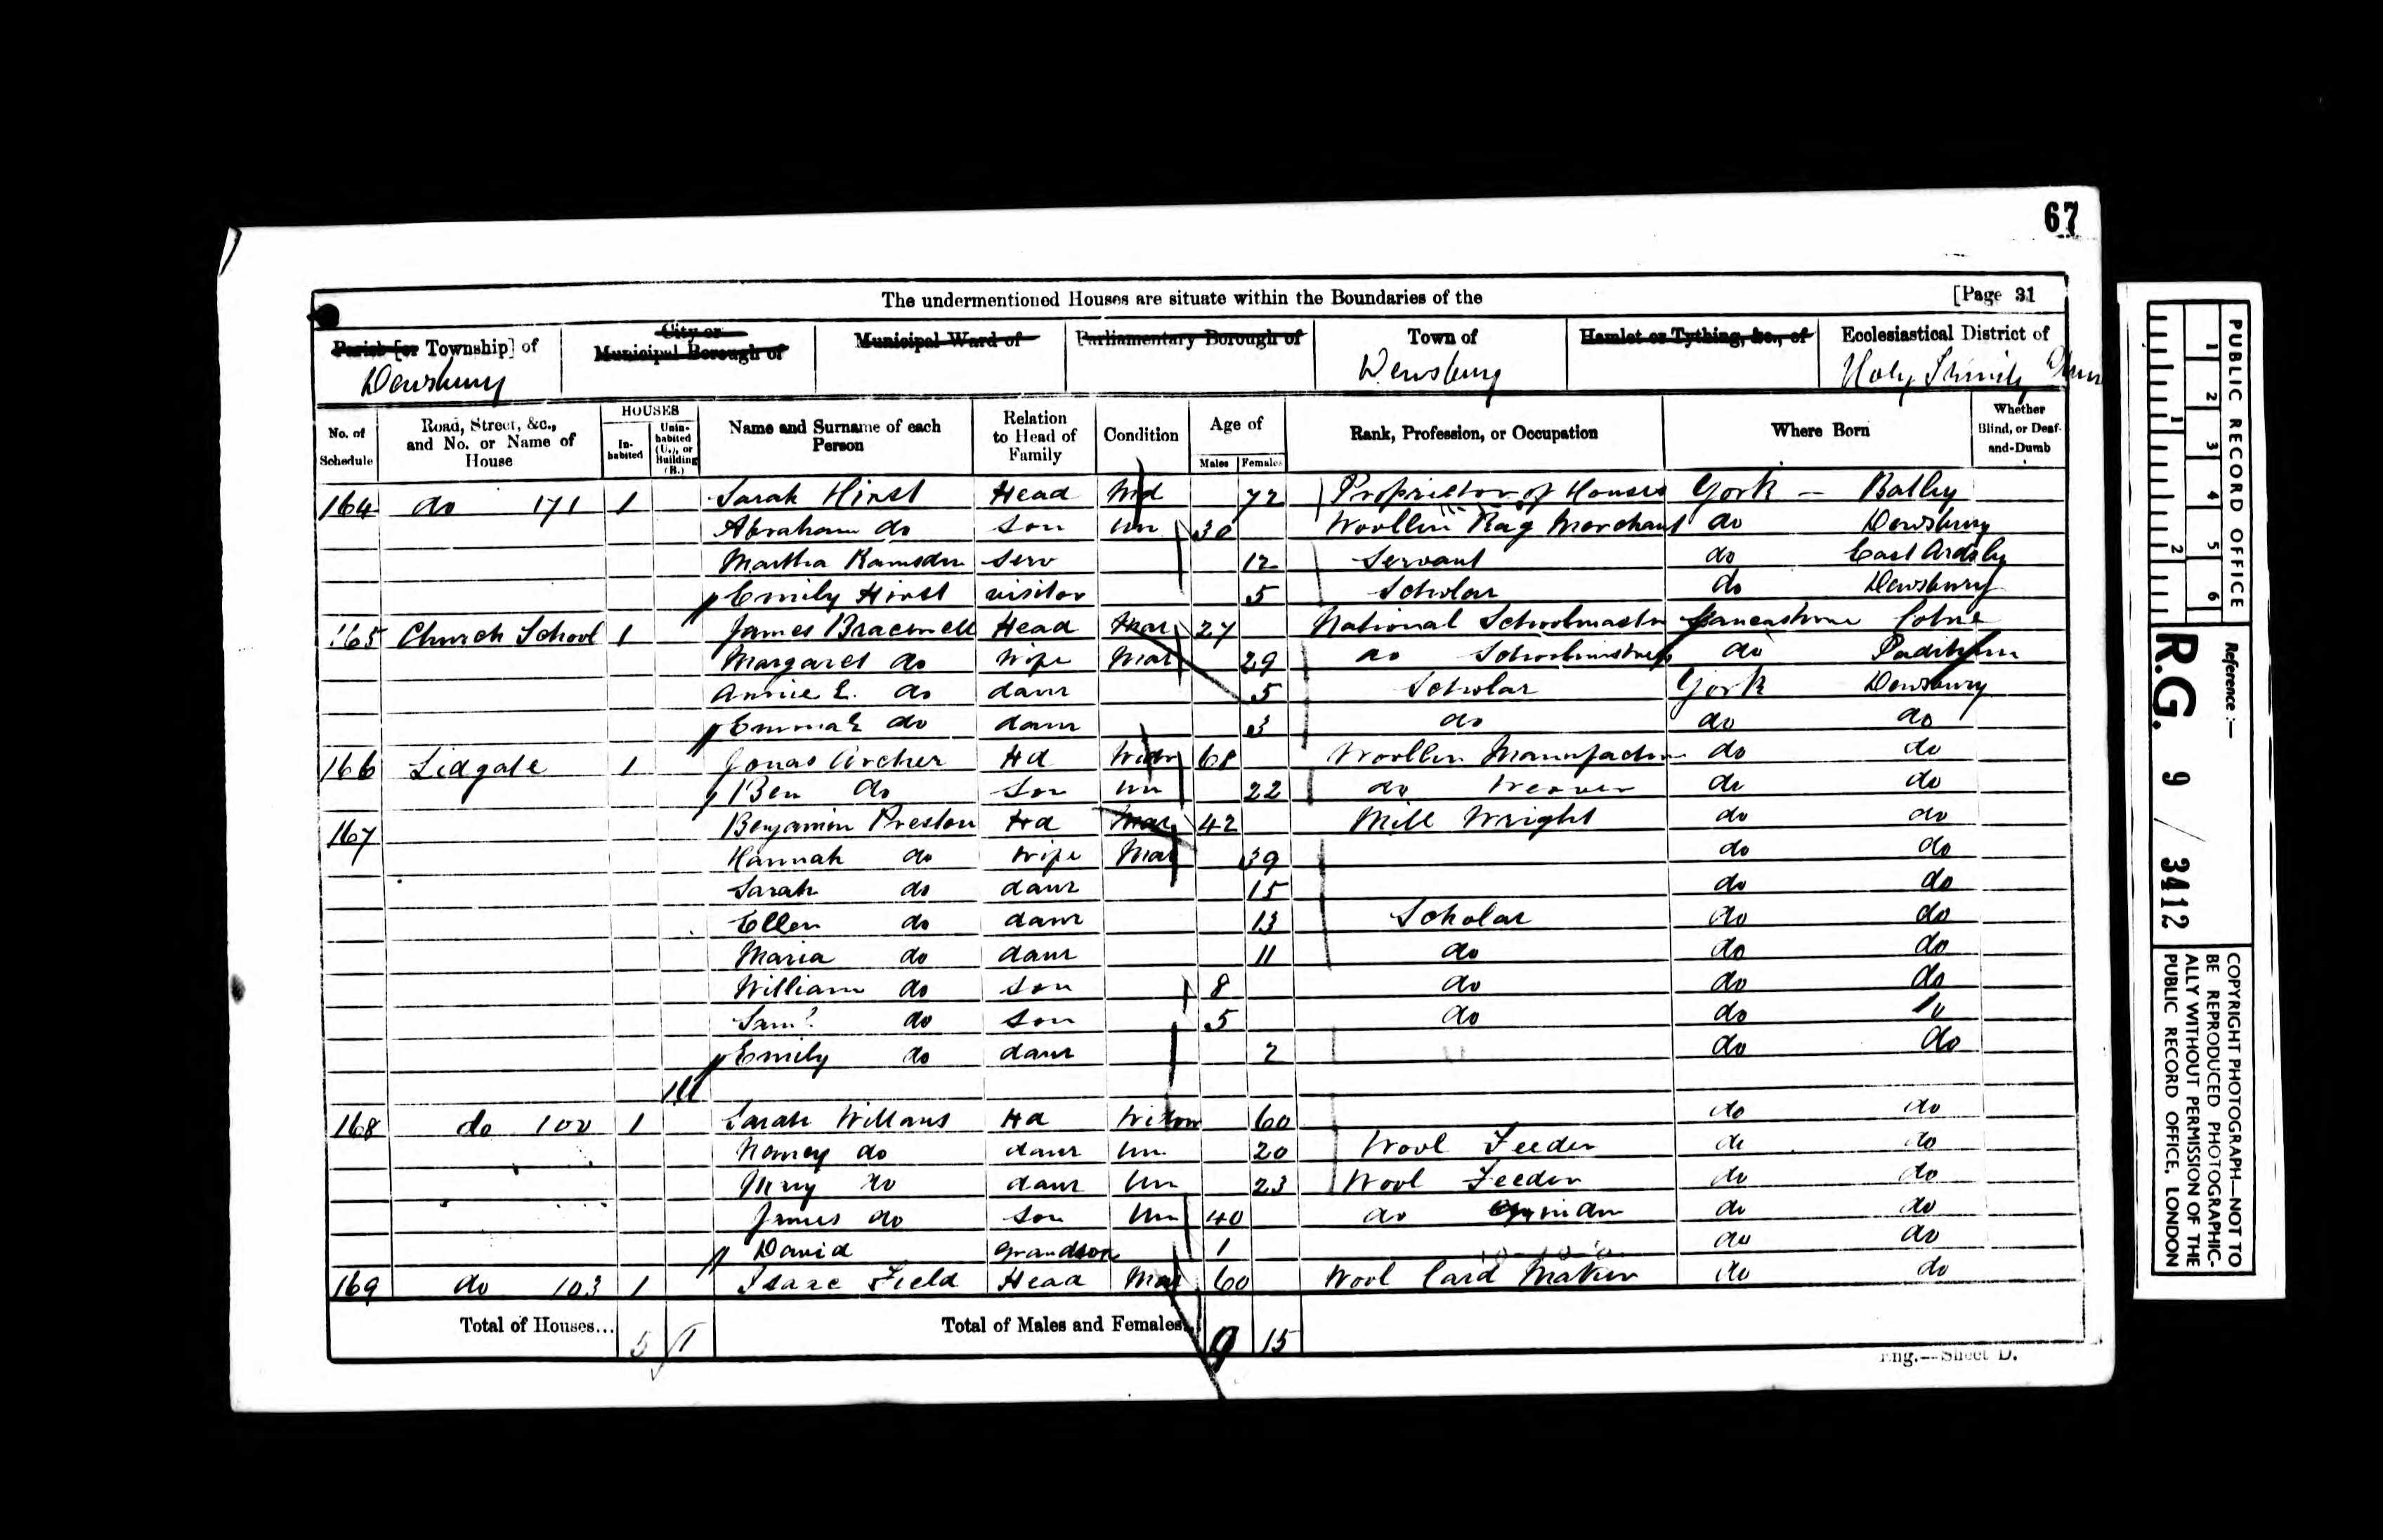 67
The undermentioned Houses are situate within the Boundaries of the [Page 31
Parish [or Township] of
City or Municipal Borough of
Municipal Ward of
Parliamentary Borough of
Town of
Hamlet or Tything, &c., of
Ecclesiastical District of
Dewsbury Dewsbury Holy Trinity
No. of Schedule
Road, Street, &c., and No. or Name of House
HOUSES
In-habited
Unin-habited (U.), or Building (B.)
Name and Surname of each Person
Relation to Head of Family
Condition
Age of
Males
Females
Rank, Profession, or Occupation
Where Born
Whether Blind, or Deaf-and-Dumb
164 do 171 1 Sarah Hirst Head Wd 72 Proprietor of Houses York - Batley
Abraham do Son Un 30 Woollen Rag Merchant do Dewsbury
Martha Ramsden Serv 12 Servant do East Ardsley
Emily Hirst visitor 5 Scholar do Dewsbury
165 Church School 1 James Bracewell Head Mar 27 National Schoolmaster Lancashire Colne
Margaret do Wife Mar 29 do Schoolmistress do Padiham
Annie E. do daur 5 Scholar York Dewsbury
Emma E do daur 3 do do do
166 Lidgate 1 Jonas Archer Hd Widr 68 Woollen Manufactur do do
Ben do Son Un 22 do Weaver do do
167 Benjamin Preston Hd Mar 42 Mill Wright do do
Hannah do Wife Mar 39 do do
Sarah do daur 15 do do
Ellen do daur 13 Scholar do do
Maria do daur 11 do do do
William do Son 8 do do do
Saml do Son 5 do do do
Emily do daur 2 do do
168 do 102 1 Sarah Willans Hd Widow 60 do do
Nancy do daur Un 20 Wool Feeder do do
Mary do daur Un 23 Wool Feeder do do
James do Son Un 40 do do do
David Grandson 1 do do
169 do 103 1 Isaac Field Head Mar 60 Wool Card Maker do do
Total of Houses... 5 1 Total of Males and Females... 9 15
Eng.—Sheet D.
PUBLIC RECORD OFFICE
1 2 3 4 5 6
1 2
Reference :—
R.G. 9 / 3412
COPYRIGHT PHOTOGRAPH—NOT TO
BE REPRODUCED PHOTOGRAPHIC-
ALLY WITHOUT PERMISSION OF THE
PUBLIC RECORD OFFICE, LONDON